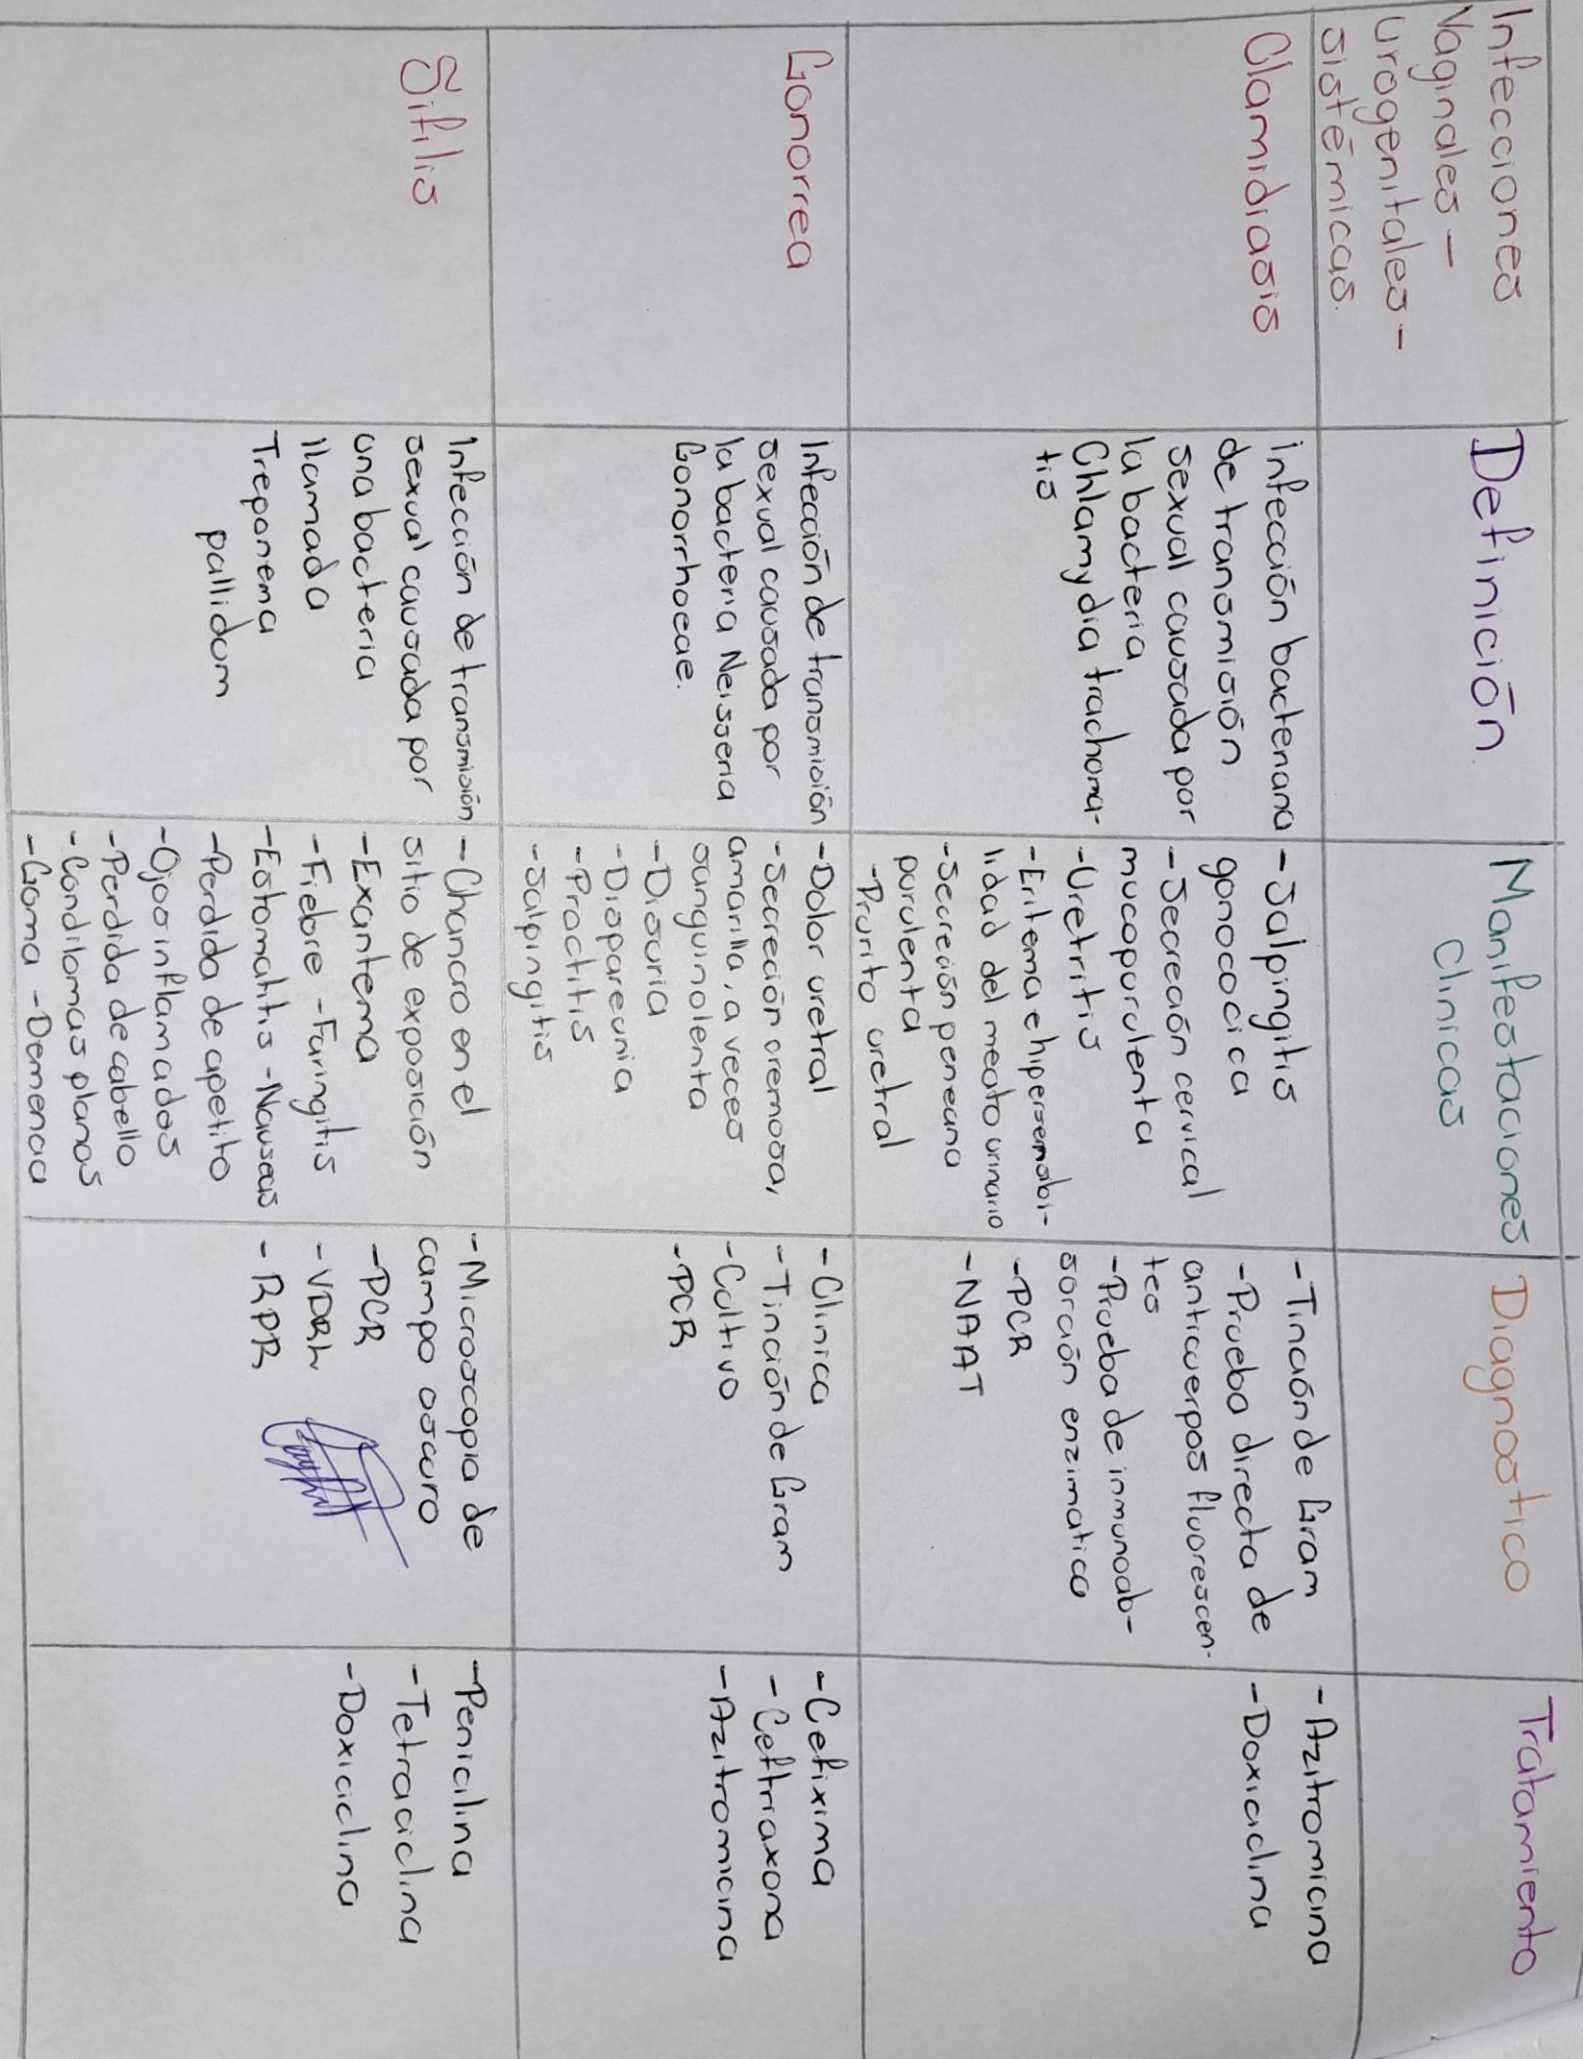 Infecciones
Vaginales-
urogenitales-
sistémicas.
Definición
Manifestaciones
Clinicas
Diagnostico
Tratamiento
Clamidiasis
infección bacteriana
de transmisión
sexual causada por
la bacteria
Chlamydia trachoma-
tis
-Salpingitis
gonococica
-Secreción cervical
mucopurulenta
-Uretritis
-Eritema e hipersensibi-
lidad del meato urinario
-Secreción peneana
purulenta
-Prurito uretral
-Tinción de Gram
-Prueba directa de
anticuerpos fluorescen-
tes
-Prueba de inmunoab-
sorción enzimatica
-PCR
-NAAT
-Azitromicina
-Doxiciclina
Gonorrea
Infección de transmisión
sexual causada por
la bacteria Neisseria
Gonorrhoeae.
-Dolor uretral
-Secreción cremosa,
amarilla, a veces
sanguinolenta
-Disuria
-Dispareunia
-Proctitis
-Salpingitis
-Clinica
-Tinción de Gram
-Cultivo
-PCR
-Cefixima
-Ceftriaxona
-Azitromicina
Sifilis
Infección de transmisión
sexual causada por
una bacteria
llamada
Treponema
pallidum
-Chancro en el
sitio de exposición
-Exantema
-Fiebre -Faringitis
-Estomatitis -Nauseas
-Perdida de apetito
-Ojos inflamados
-Perdida de cabello
-Condilomas planos
-Goma -Demencia
-Microscopia de
campo oscuro
-PCR
-VDRL
-RPR
-Penicilina
-Tetraciclina
-Doxiciclina